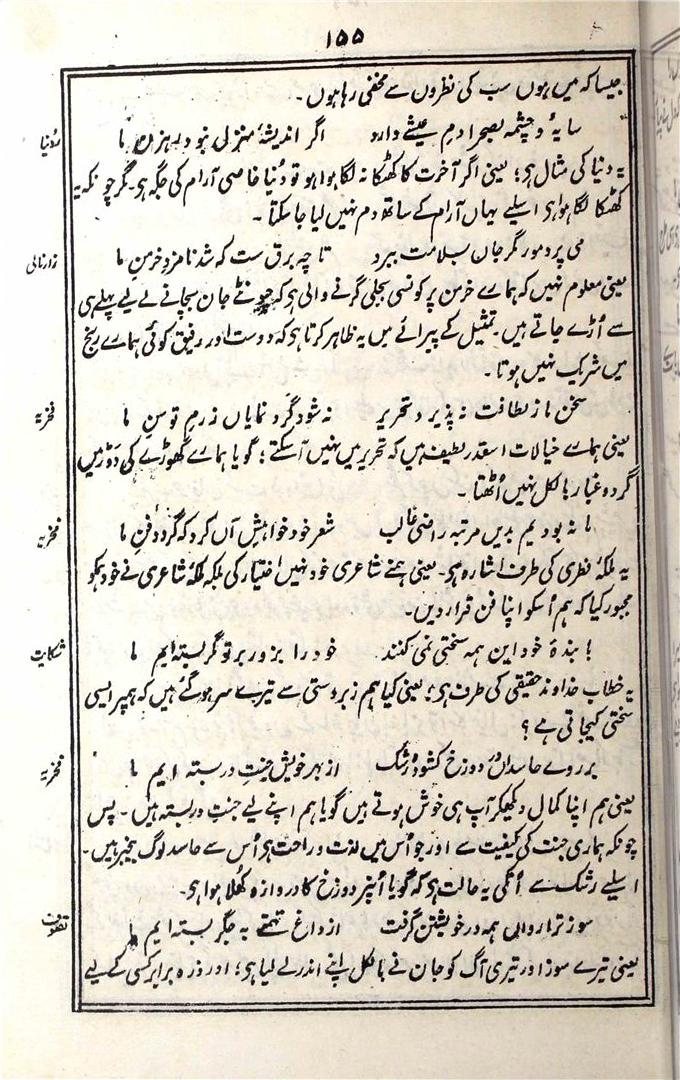 ۱۵۵
جیسا کہ میں ہوں سب کی نظروں سے مخفی رہا ہوں۔
سایہ و چشمہ بصحرا دمِ عیشے دارد اگر اندیشۂ منزل نبود رہزنِ ما
دنیا
یہ دنیا کی مثال ہی؛ یعنی اگر آخرت کا کھٹکا نہ لگا ہوا ہو تو دُنیا خاصی آرام کی جگہ ہی۔ مگر چونکہ یہ
کھٹکا لگا ہوا ہی اسلیے یہاں آرام کے ساتھ دم نہیں لیا جا سکتا۔
می پرد مور مگر جاں بسلامت ببرد تا چہ برق ست کہ شد نامزدِ خرمنِ ما
زارنالی
یعنی معلوم نہیں کہ ہمارے خرمن پر کونسی بجلی گرنے والی ہی کہ چونٹے جان بچانے کے لیے پہلے ہی
سے اُڑے جاتے ہیں۔ تمثیل کے پیرائے میں یہ ظاہر کرتا ہی کہ دوست اور رفیق کوئی ہمارے رنج
میں شریک نہیں ہوتا۔
سخنِ ما ز لطافت نہ پذیرد تحریر نہ شود گرد نمایاں ز رمِ توسنِ ما
فخریہ
یعنی ہمارے خیالات اسقدر لطیف ہیں کہ تحریر میں نہیں آ سکتے؛ گویا ہمارے گھوڑے کی دَوڑ میں
گرد و غبار بالکل نہیں اُٹھتا۔
ما نبودیم بدیں مرتبہ راضی غالب شعر خود خواہشِ آں کرد کہ گردد فنِ ما
فخریہ
یہ ملکۂ فطری کی طرف اشارہ ہی۔ یعنی ہمنے شاعری خود نہیں اختیار کی بلکہ ملکۂ شاعری نے خود ہمکو
مجبور کیا کہ ہم اُسکو اپنا فن قرار دیں۔
با بندۂ خود این ہمہ سختی نمی کنند خود را بزور بر تو مگر بستہ ایم ما
شکایت
یہ خطاب خداوندِ حقیقی کی طرف ہی؛ یعنی کیا ہم زبردستی سے تیرے سر ہو گئے ہیں کہ ہمپر ایسی
سختی کیجاتی ہے؟
بر روے حاسداں درِ دوزخ کشودہ رشک از بہرِ خویش جنتِ دربستہ ایم ما
فخریہ
یعنی ہم اپنا کمال دیکھکر آپ ہی خوش ہوتے ہیں گویا ہم اپنے لیے جنتِ دربستہ ہیں۔ پس
چونکہ ہماری جنت کی کیفیت سے اور جو اُس میں لذت و راحت ہی اُس سے حاسد لوگ بیخبر ہیں۔
اسلیے رشک سے اُنکی یہ حالت ہی کہ گویا اُنپر دوزخ کا دروازہ کھلا ہوا ہی۔
سوزِ ترا رواں ہمہ در خویشتن گرفت از داغ تہمتے بہ جگر بستہ ایم ما
تصوف
یعنی تیرے سوز اور تیری آگ کو جان نے بالکل اپنے اندر لے لیا ہی؛ اور ذرہ برابر کسی کے لیے